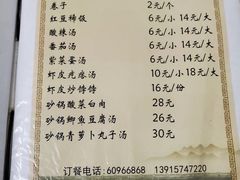 卷子 2元/个
红豆稀饭 6元/小 14元/大
酸辣汤 6元/小 14元/大
番茄汤 6元/小 14元/大
紫菜蛋汤 6元/小 14元/大
虾皮疙瘩汤 10元/小 18元/大
虾皮炒饽饽 16元/份
砂锅酸菜白肉 28元
砂锅鲫鱼豆腐汤 26元
砂锅青萝卜丸子汤 30元
订餐电话:60966868 13915747220